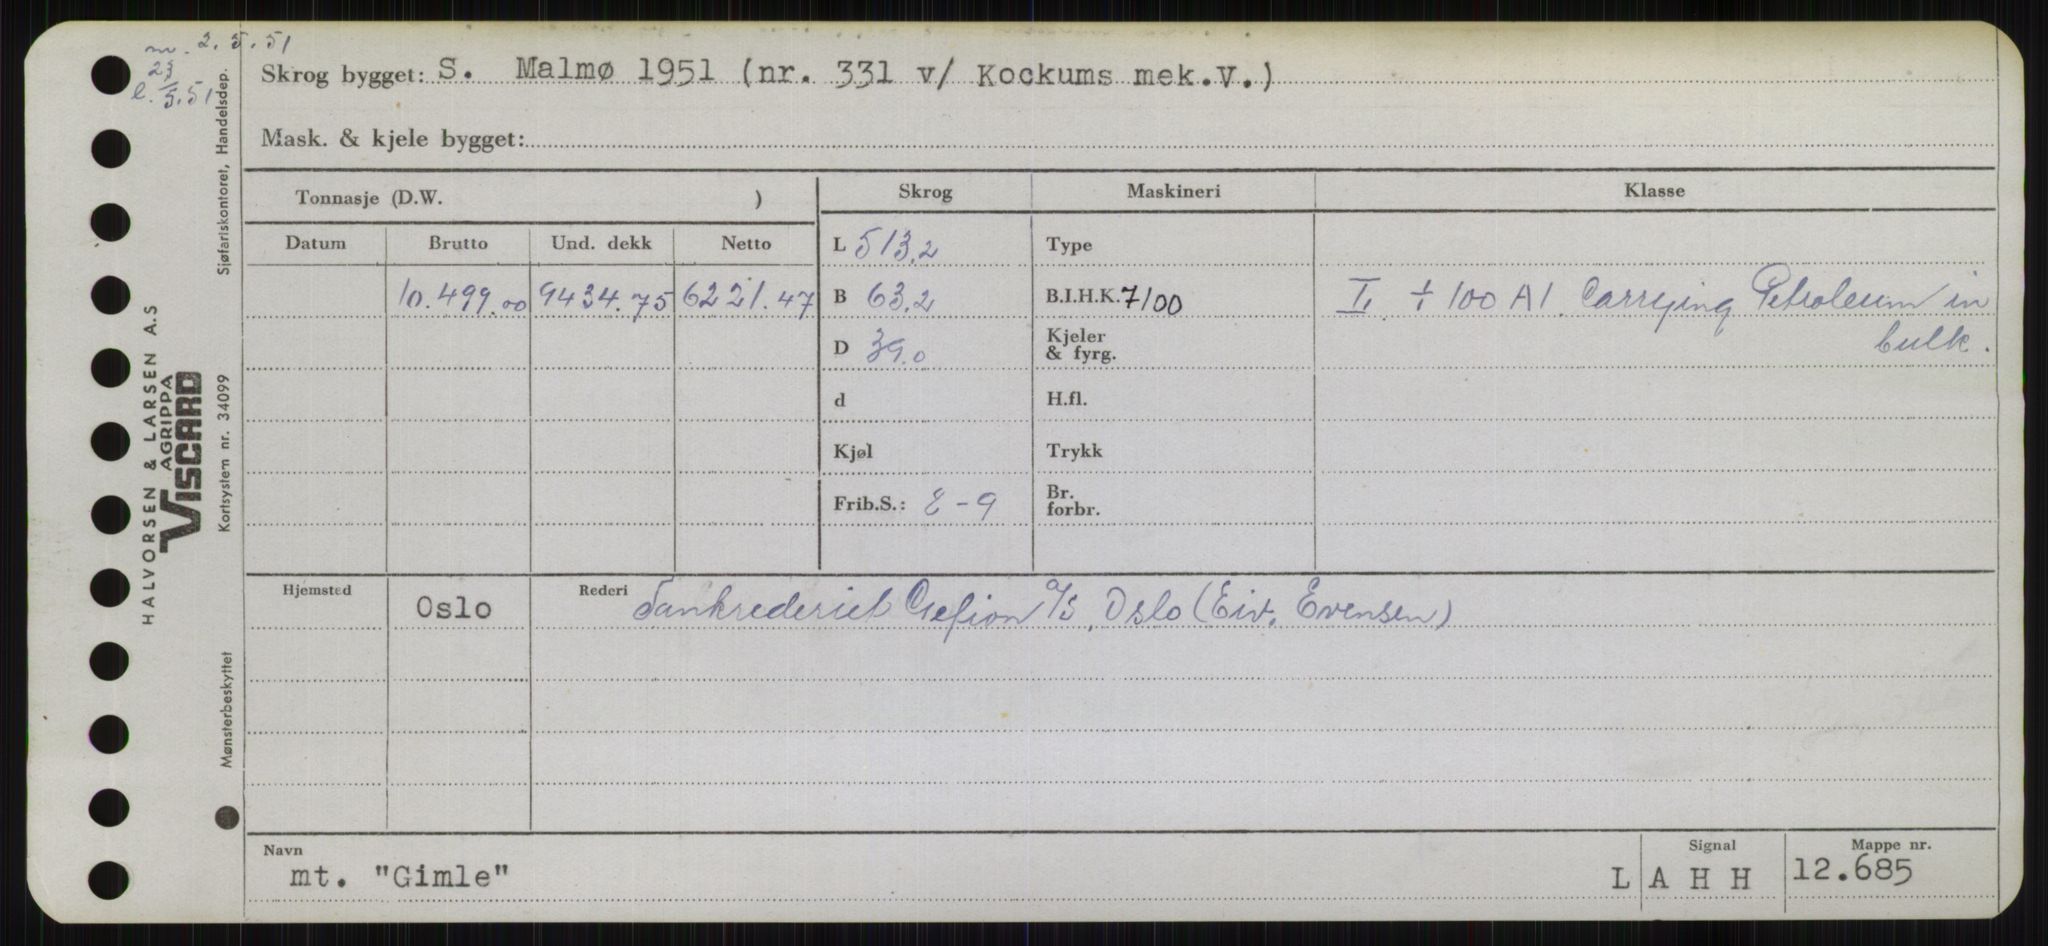 m. 2.5.51
23
l. 5.51
Skrog bygget: S. Malmø 1951 (nr. 331 v/ Kockums mek.V.)
Mask. & kjele bygget:
Tonnasje (D.W. )
Skrog
Maskineri
Klasse
Datum
Brutto
Und. dekk
Netto
L 513,2
Type
10.499.00
9434.75
6221.47
B 63,2
B.I.H.K. 7100
I + 100 A1. Carrying Petroleum in
bulk.
D 39,0
Kjeler
& fyrg.
d
H.fl.
Kjøl
Trykk
Frib.S.: 8-9
Br.
forbr.
Hjemsted
Oslo
Rederi
Tankrederiet Gefion A/S, Oslo (Eiv. Evensen)
Navn
mt. "Gimle"
Signal
L A H H
Mappe nr.
12.685
HALVORSEN & LARSEN A.S
AGRIPPA
VISCARD
Mønsterbeskyttet
Kortsystem nr. 34099
Sjøfartskontoret, Handelsdep.